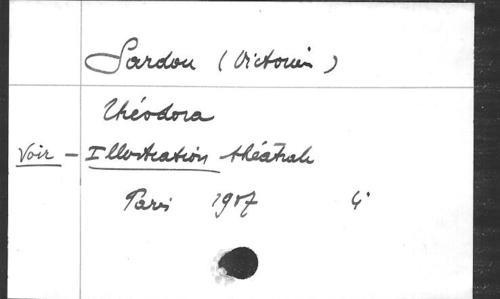 Sardou (Victorien)
Théodora
Voir - Illustration théâtrale
Paris 1907 4°